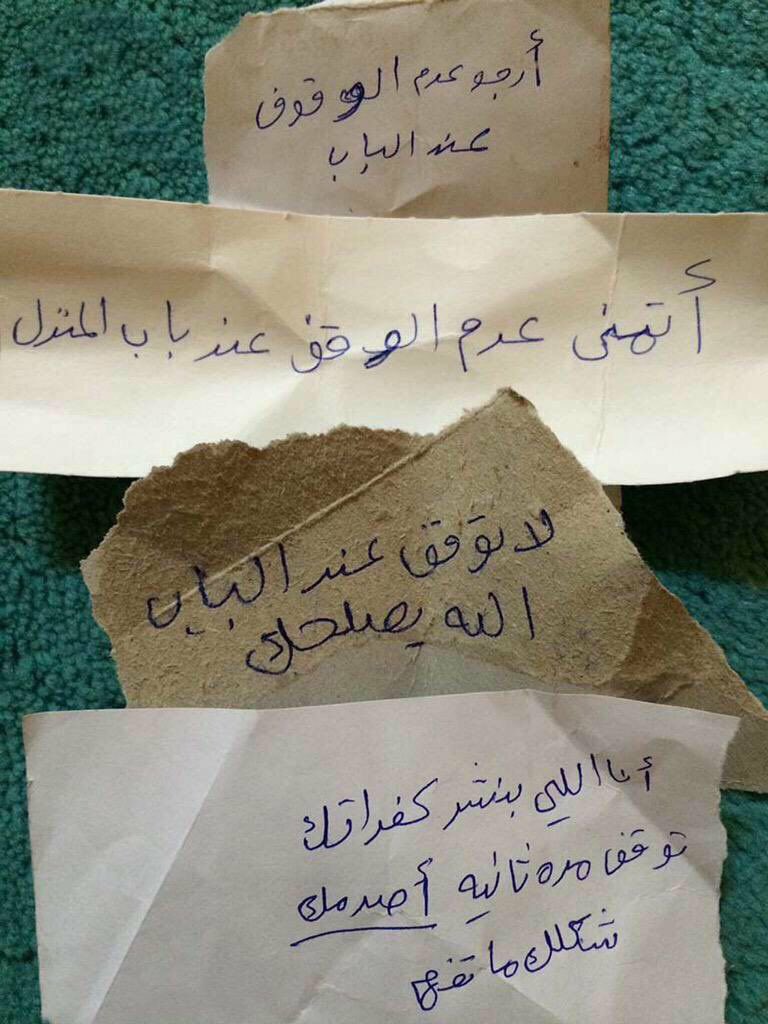 أرجو عدم الوقوف
عند الباب
أتمنى عدم الوقف عند باب المنزل
لا توقف عند الباب
الله يصلحك
أنا اللي بنشر كفراتك
توقف مره ثانيه أصدمك
شكلك ما تفهم